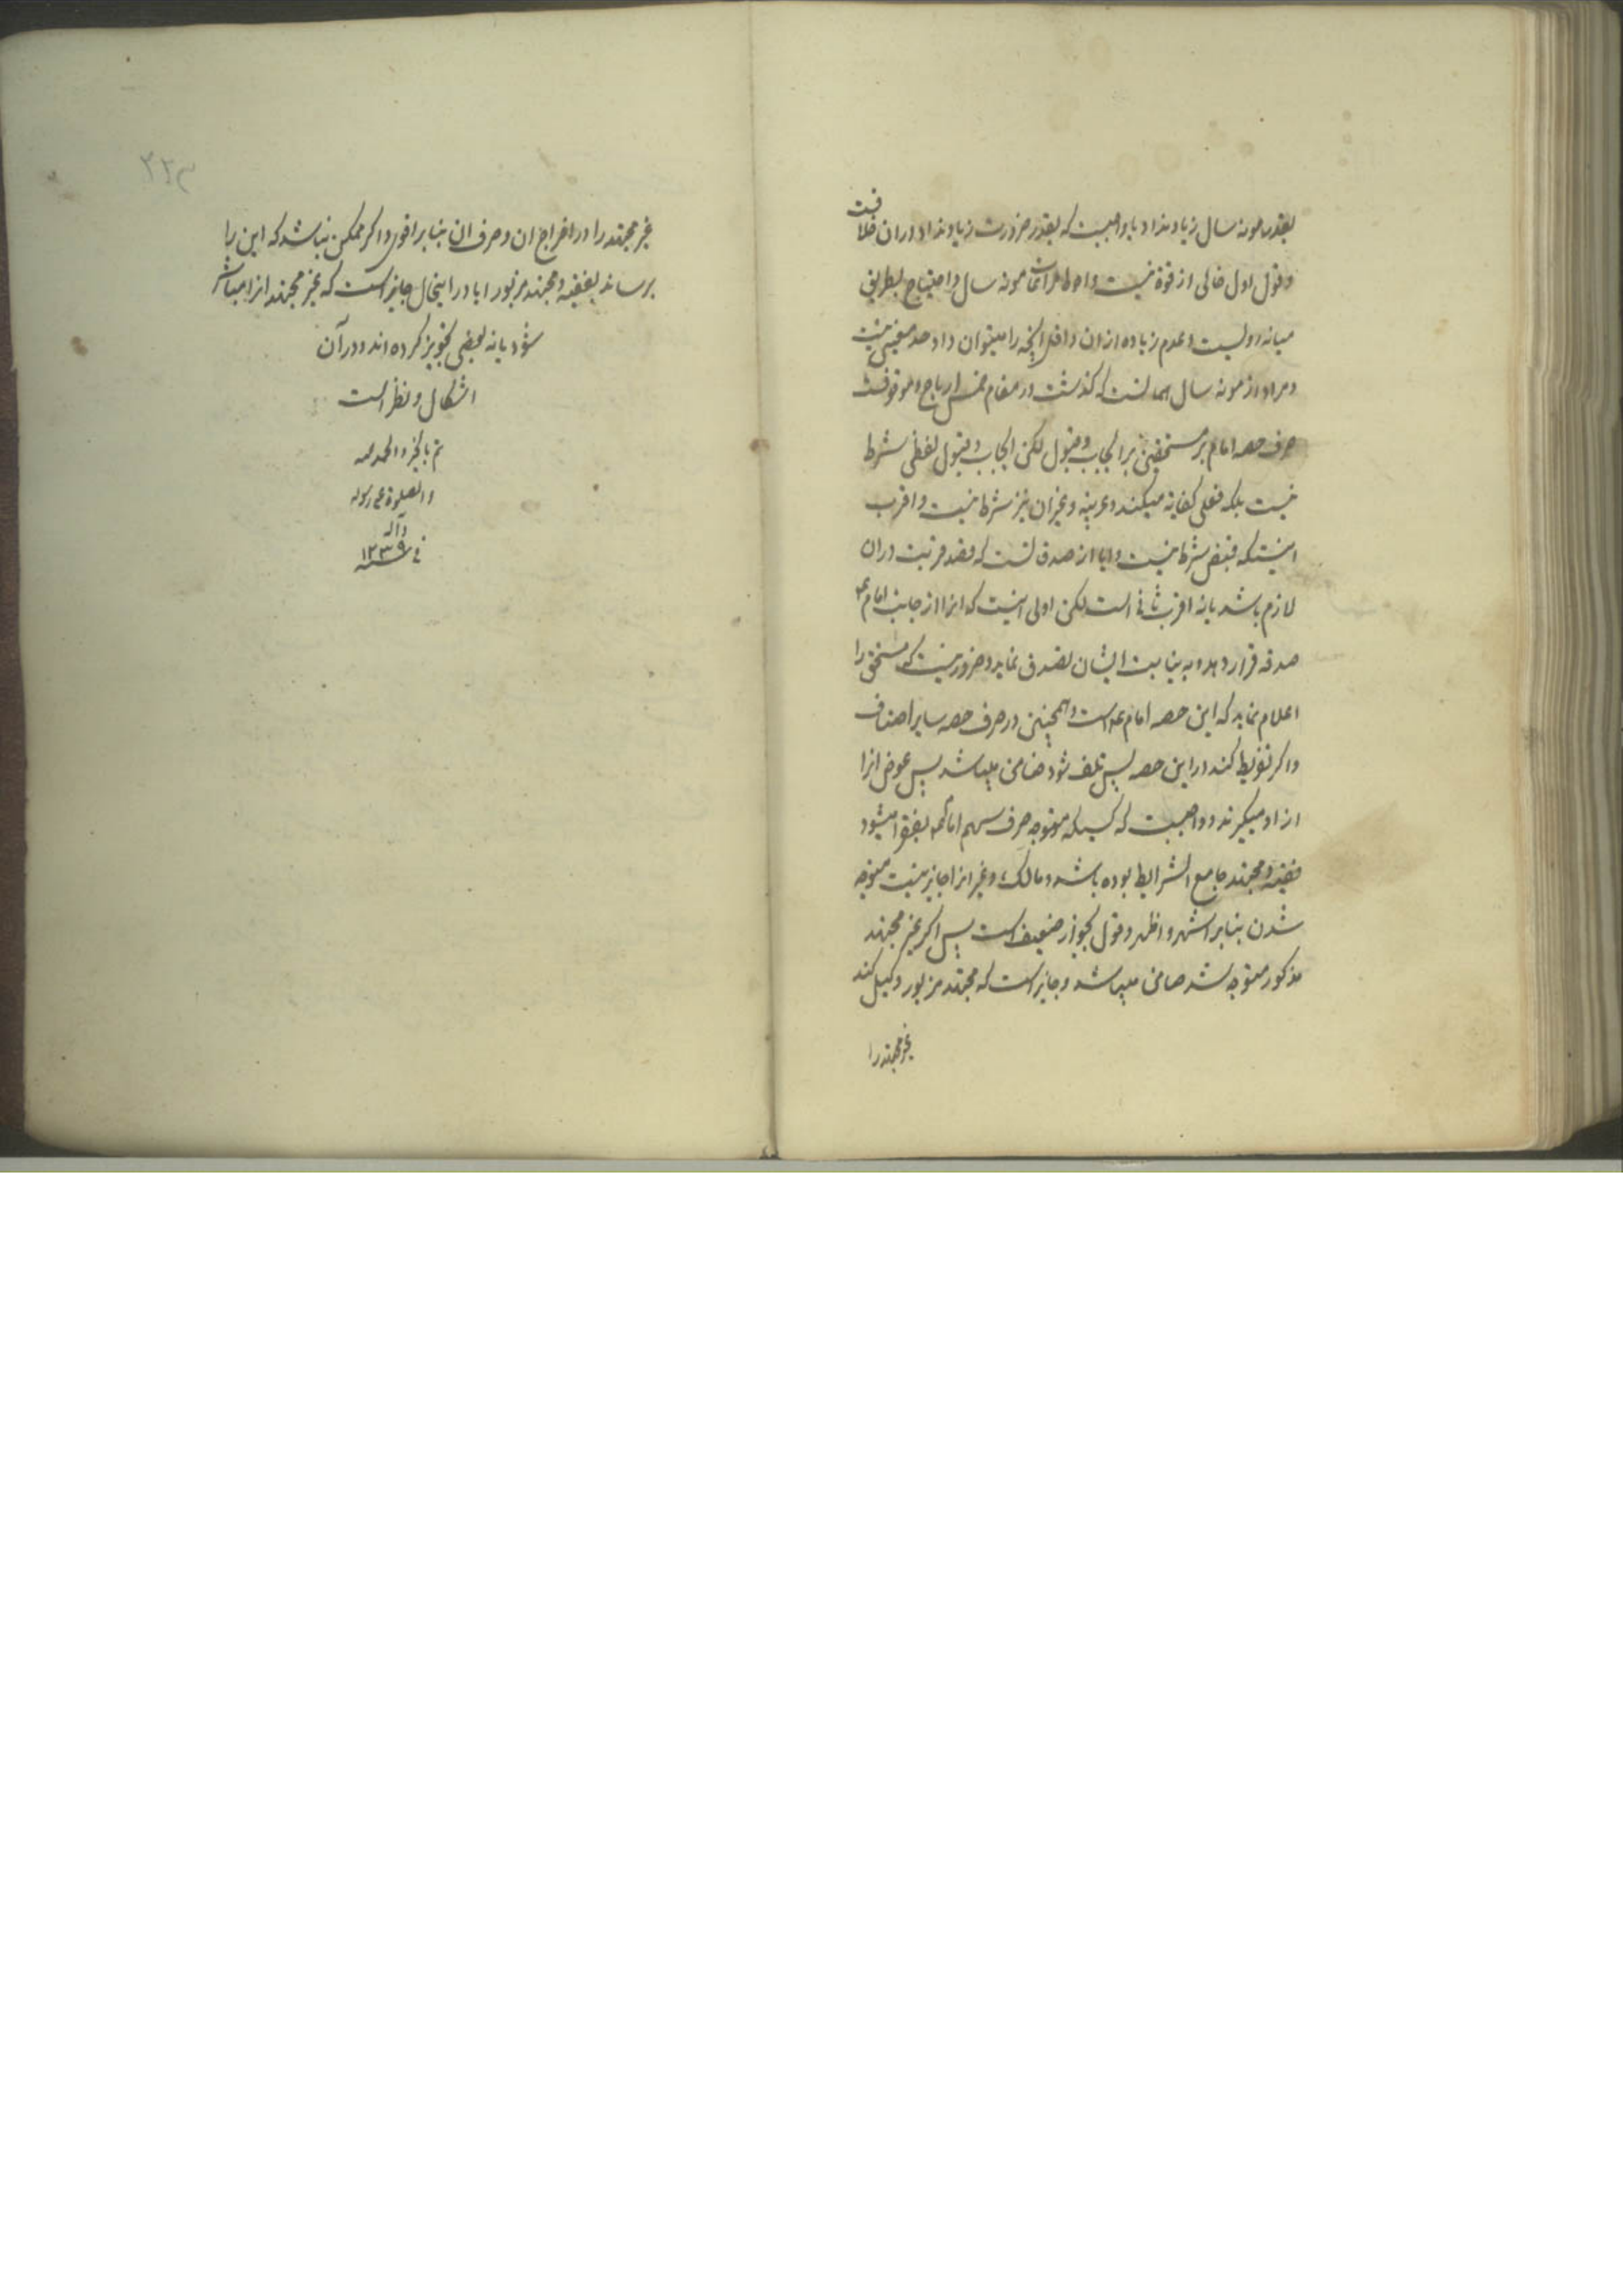 بقدر مونه سال زیاد نداد یا واجبست که بقدر ضرورت زیاد نداد در ان خلافست
و قول اول خالی از قوة نیست و احوط مراعات مونه سال و احتیاج بطریق
میانه رویست و عدم زیاده از ان و اقل انچه را میتوان داد حد معینی نیست
و مراد از مونه سال همانست که گذشت در مقام خمس ارباح و موقوفست
صرف حصه امام بر مستحقین بر ایجاب و قبول لکن ایجاب و قبول لفظی شرط
نیست بلکه فعلی کفایة میکند و عربیه و غیر ان نیز شرط نیست و اقرب
اینستکه قبض شرط نیست و ایا از صدقاتست که قصد قربت در ان
لازم باشد یا نه اقرب ثانی است لکن اولی اینست که انرا از جانب امام ع
صدقه قرار دهد و به نیابت ایشان تصدق نماید و ضرور نیست که مستحق را
اعلام نماید که این حصه امام ع است و همچنین در صرف حصه سایر اصناف
و اکر تفریط کند در این حصه پس تلف شود ضامن میباشد پس عوض انرا
از او میکیرند و واجبست که کسیکه متوجه صرف سهم امام ع بفقرا میشود
فقیه و مجتهد جامع الشرایط بوده باشد و مالک و غیر انرا جایز نیست متوجه
شدن بنابر اشهر و اظهر و قول بجواز ضعیف است پس اکر غیر مجتهد
مذکور متوجه شد ضامن میباشد و جایز است که مجتهد مزبور وکیل کند
غیر مجتهد را
۲۲۳
غیر مجتهد را در اخراج ان و صرف ان بنابر اقوی و اکر ممکن نباشد که این را
برساند بفقیه و مجتهد مزبور ایا در اینحال جایز است که غیر مجتهد انرا مباشر
شود یا نه بعضی تجویز کرده اند و در آن
اشکال و نظر است
تم بالخیر و الحمد لله
و الصلوة علی رسوله
و آله
فی سنه ۱۲۳۹